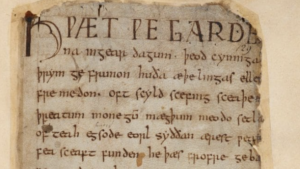 HǷÆT ǷE GARDE
na ingear dagum . þeod cyninga
þrym ge frunon huda æþelingas elle
fre medon . oft scyld scefing sceaþe
þreatum monegū mægþum meodo setl
of teah egsode eorl syððan ærest ƿea
fea sceaft funden he þæs frofre geba